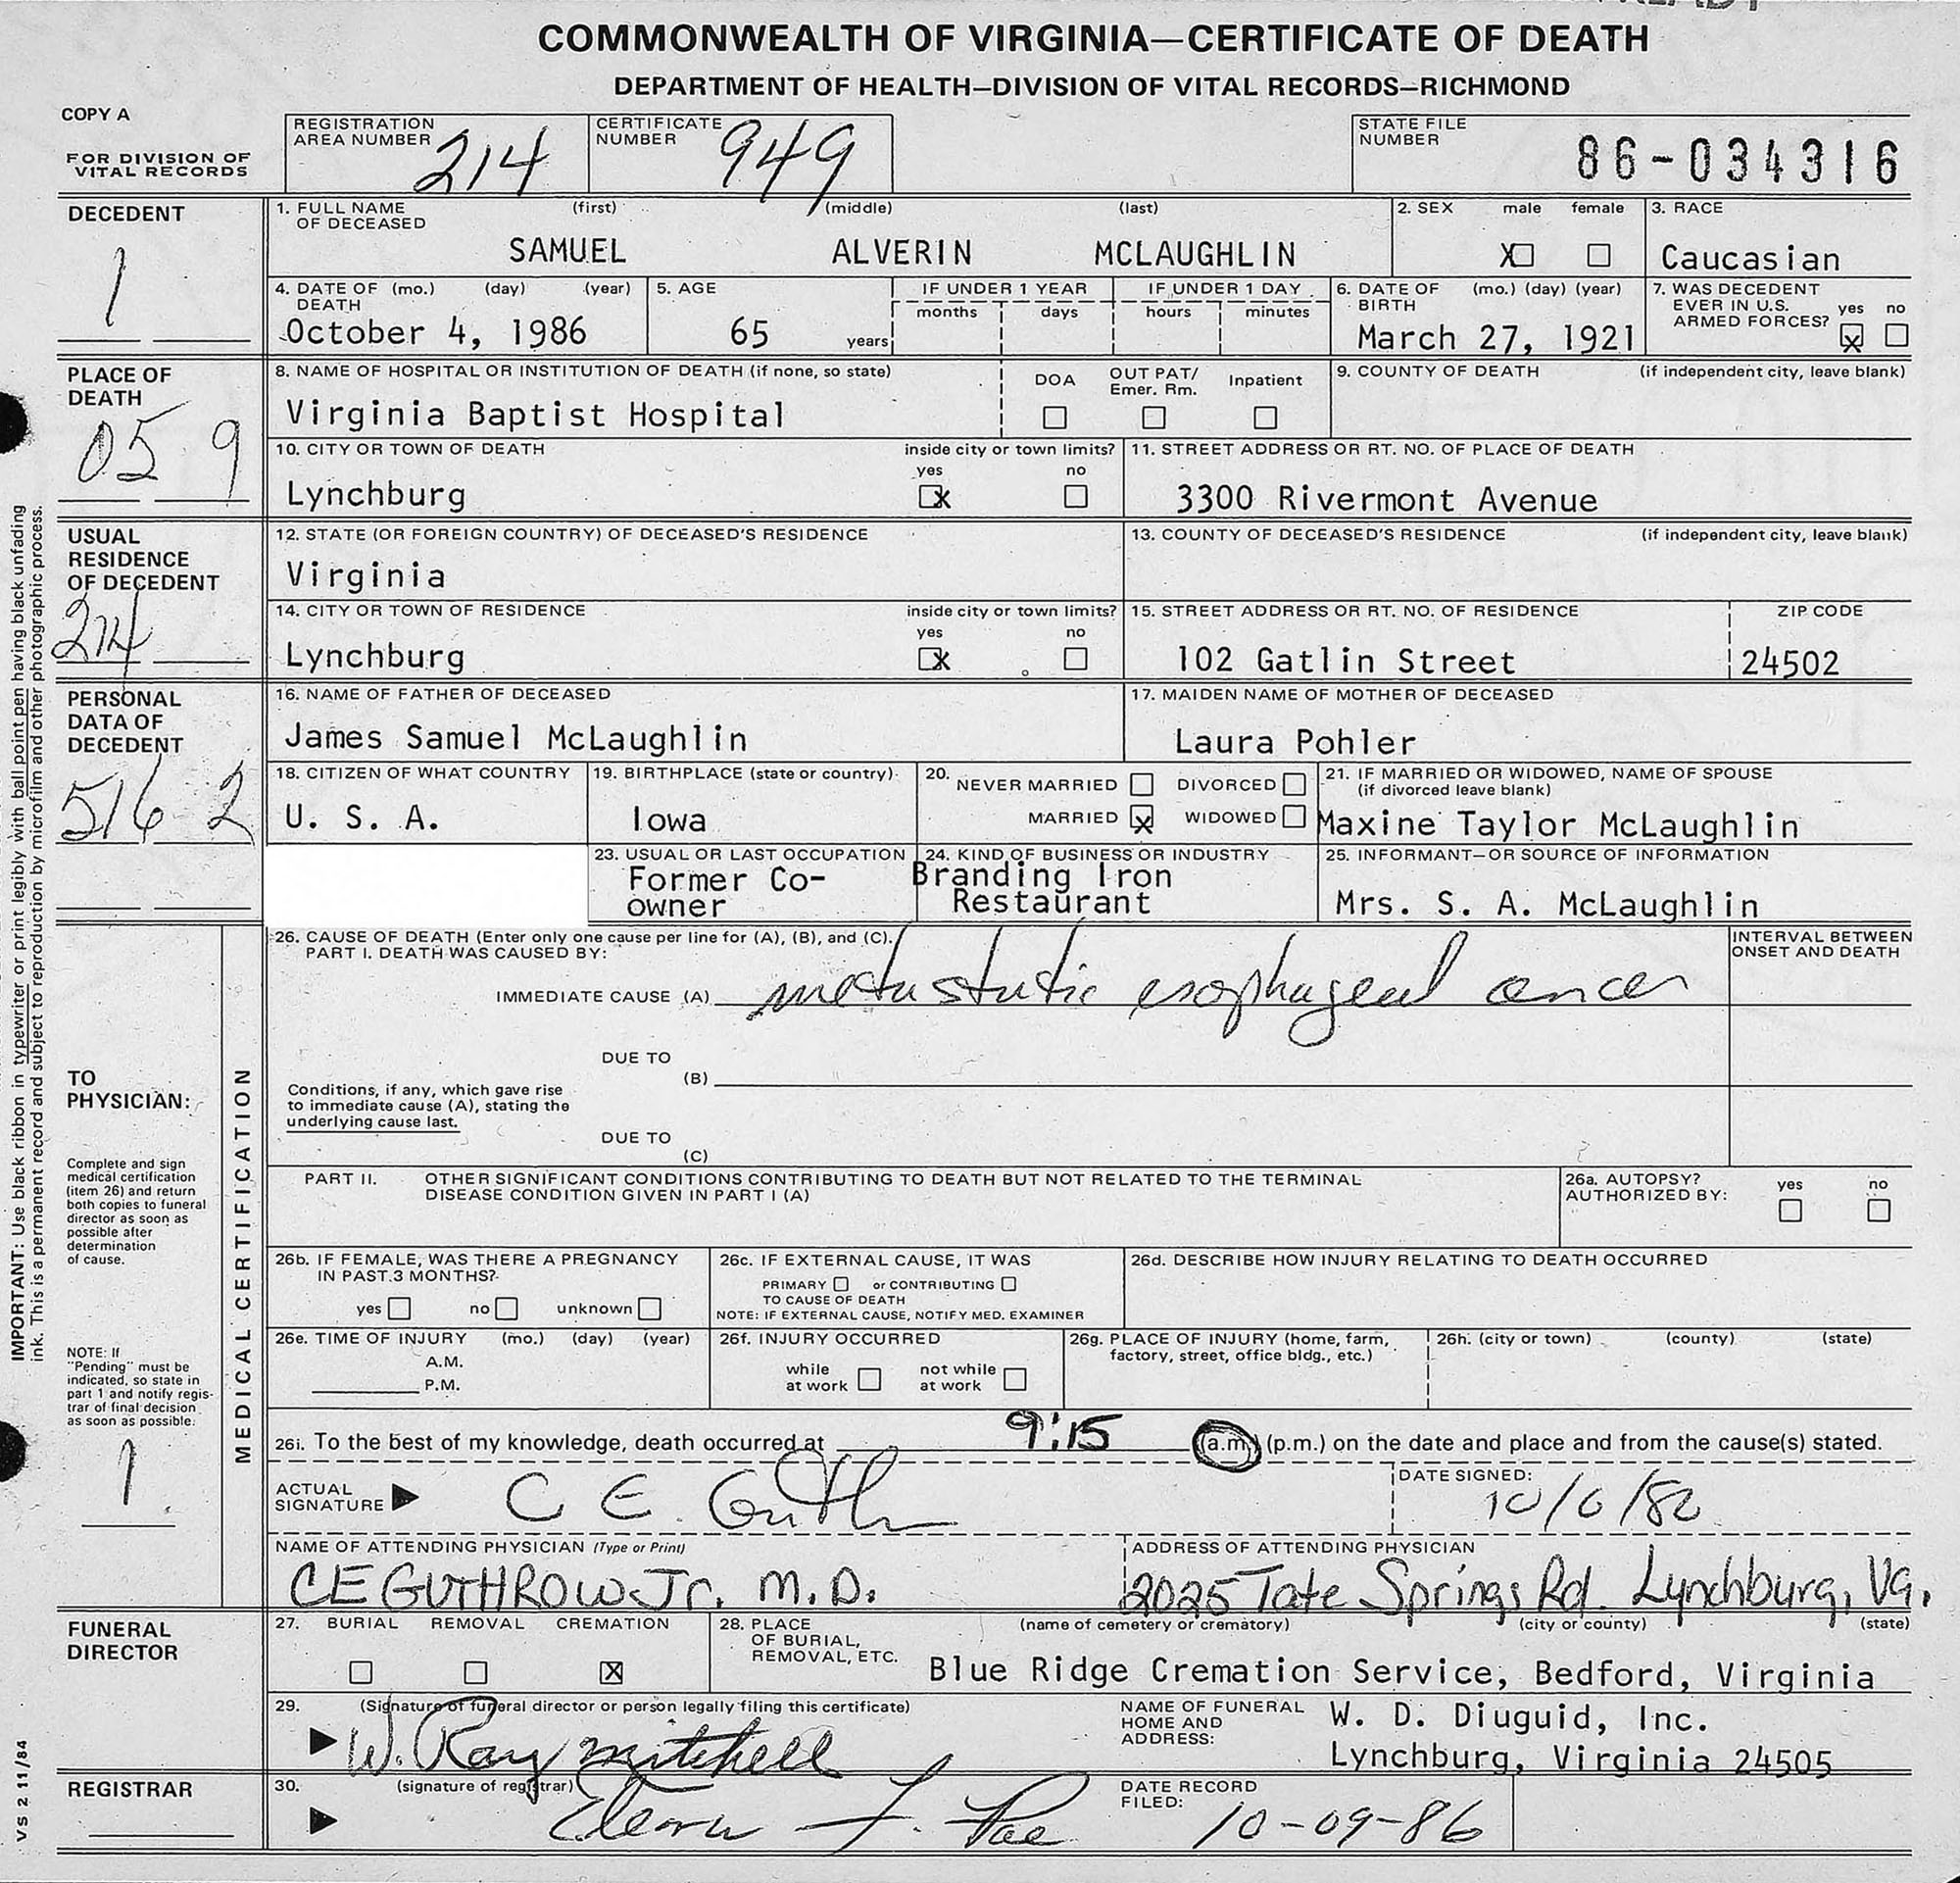 COMMONWEALTH OF VIRGINIA—CERTIFICATE OF DEATH
DEPARTMENT OF HEALTH—DIVISION OF VITAL RECORDS—RICHMOND
COPY A
FOR DIVISION OF
VITAL RECORDS
REGISTRATION
AREA NUMBER 214
CERTIFICATE
NUMBER 949
STATE FILE
NUMBER 86-034316
DECEDENT
1
1. FULL NAME (first) (middle) (last)
OF DECEASED
SAMUEL ALVERIN MCLAUGHLIN
2. SEX male female
X
3. RACE
Caucasian
4. DATE OF (mo.) (day) (year)
DEATH
October 4, 1986
5. AGE
65 years
IF UNDER 1 YEAR
months days
IF UNDER 1 DAY
hours minutes
6. DATE OF (mo.) (day) (year)
BIRTH
March 27, 1921
7. WAS DECEDENT
EVER IN U.S. yes no
ARMED FORCES?
x
PLACE OF
DEATH
05 9
8. NAME OF HOSPITAL OR INSTITUTION OF DEATH (if none, so state)
Virginia Baptist Hospital
DOA OUT PAT/ Inpatient
Emer. Rm.
9. COUNTY OF DEATH (if independent city, leave blank)
10. CITY OR TOWN OF DEATH inside city or town limits?
yes no
Lynchburg x
11. STREET ADDRESS OR RT. NO. OF PLACE OF DEATH
3300 Rivermont Avenue
USUAL
RESIDENCE
OF DECEDENT
214
12. STATE (OR FOREIGN COUNTRY) OF DECEASED'S RESIDENCE
Virginia
13. COUNTY OF DECEASED'S RESIDENCE (if independent city, leave blank)
14. CITY OR TOWN OF RESIDENCE inside city or town limits?
yes no
Lynchburg x
15. STREET ADDRESS OR RT. NO. OF RESIDENCE ZIP CODE
102 Gatlin Street 24502
PERSONAL
DATA OF
DECEDENT
516 2
16. NAME OF FATHER OF DECEASED
James Samuel McLaughlin
17. MAIDEN NAME OF MOTHER OF DECEASED
Laura Pohler
18. CITIZEN OF WHAT COUNTRY
U. S. A.
19. BIRTHPLACE (state or country)
Iowa
20. NEVER MARRIED DIVORCED
MARRIED x WIDOWED
21. IF MARRIED OR WIDOWED, NAME OF SPOUSE
(if divorced leave blank)
Maxine Taylor McLaughlin
23. USUAL OR LAST OCCUPATION
Former Co-
owner
24. KIND OF BUSINESS OR INDUSTRY
Branding Iron
Restaurant
25. INFORMANT—OR SOURCE OF INFORMATION
Mrs. S. A. McLaughlin
IMPORTANT: Use black ribbon in typewriter or print legibly with ball point pen having black unfading
ink. This is a permanent record and subject to reproduction by microfilm and other photographic process.
TO
PHYSICIAN:
Complete and sign
medical certification
(item 26) and return
both copies to funeral
director as soon as
possible after
determination
of cause.
NOTE: If
"Pending" must be
indicated, so state in
part 1 and notify regis-
trar of final decision
as soon as possible.
1
MEDICAL CERTIFICATION
26. CAUSE OF DEATH (Enter only one cause per line for (A), (B), and (C).
PART I. DEATH WAS CAUSED BY:
INTERVAL BETWEEN
ONSET AND DEATH
IMMEDIATE CAUSE (A) metastatic esophageal cancer
DUE TO
(B)
Conditions, if any, which gave rise
to immediate cause (A), stating the
underlying cause last.
DUE TO
(C)
PART II. OTHER SIGNIFICANT CONDITIONS CONTRIBUTING TO DEATH BUT NOT RELATED TO THE TERMINAL
DISEASE CONDITION GIVEN IN PART I (A)
26a. AUTOPSY? yes no
AUTHORIZED BY:
26b. IF FEMALE, WAS THERE A PREGNANCY
IN PAST 3 MONTHS?
yes no unknown
26c. IF EXTERNAL CAUSE, IT WAS
PRIMARY or CONTRIBUTING
TO CAUSE OF DEATH
NOTE: IF EXTERNAL CAUSE, NOTIFY MED. EXAMINER
26d. DESCRIBE HOW INJURY RELATING TO DEATH OCCURRED
26e. TIME OF INJURY (mo.) (day) (year)
A.M.
P.M.
26f. INJURY OCCURRED
while not while
at work at work
26g. PLACE OF INJURY (home, farm,
factory, street, office bldg., etc.)
26h. (city or town) (county) (state)
26i. To the best of my knowledge, death occurred at 9:15 (a.m) (p.m.) on the date and place and from the cause(s) stated.
ACTUAL
SIGNATURE C E. Guth
DATE SIGNED:
10/6/86
NAME OF ATTENDING PHYSICIAN (Type or Print)
CE GUTHROW Jr. M.D.
ADDRESS OF ATTENDING PHYSICIAN
2025 Tate Springs Rd. Lynchburg, Va.
FUNERAL
DIRECTOR
27. BURIAL REMOVAL CREMATION
X
28. PLACE (name of cemetery or crematory) (city or county) (state)
OF BURIAL,
REMOVAL, ETC. Blue Ridge Cremation Service, Bedford, Virginia
29. (Signature of funeral director or person legally filing this certificate)
W. Ray Mitchell
NAME OF FUNERAL
HOME AND
ADDRESS:
W. D. Diuguid, Inc.
Lynchburg, Virginia 24505
REGISTRAR
30. (signature of registrar)
DATE RECORD
FILED: 10-09-86
VS 2 11/84